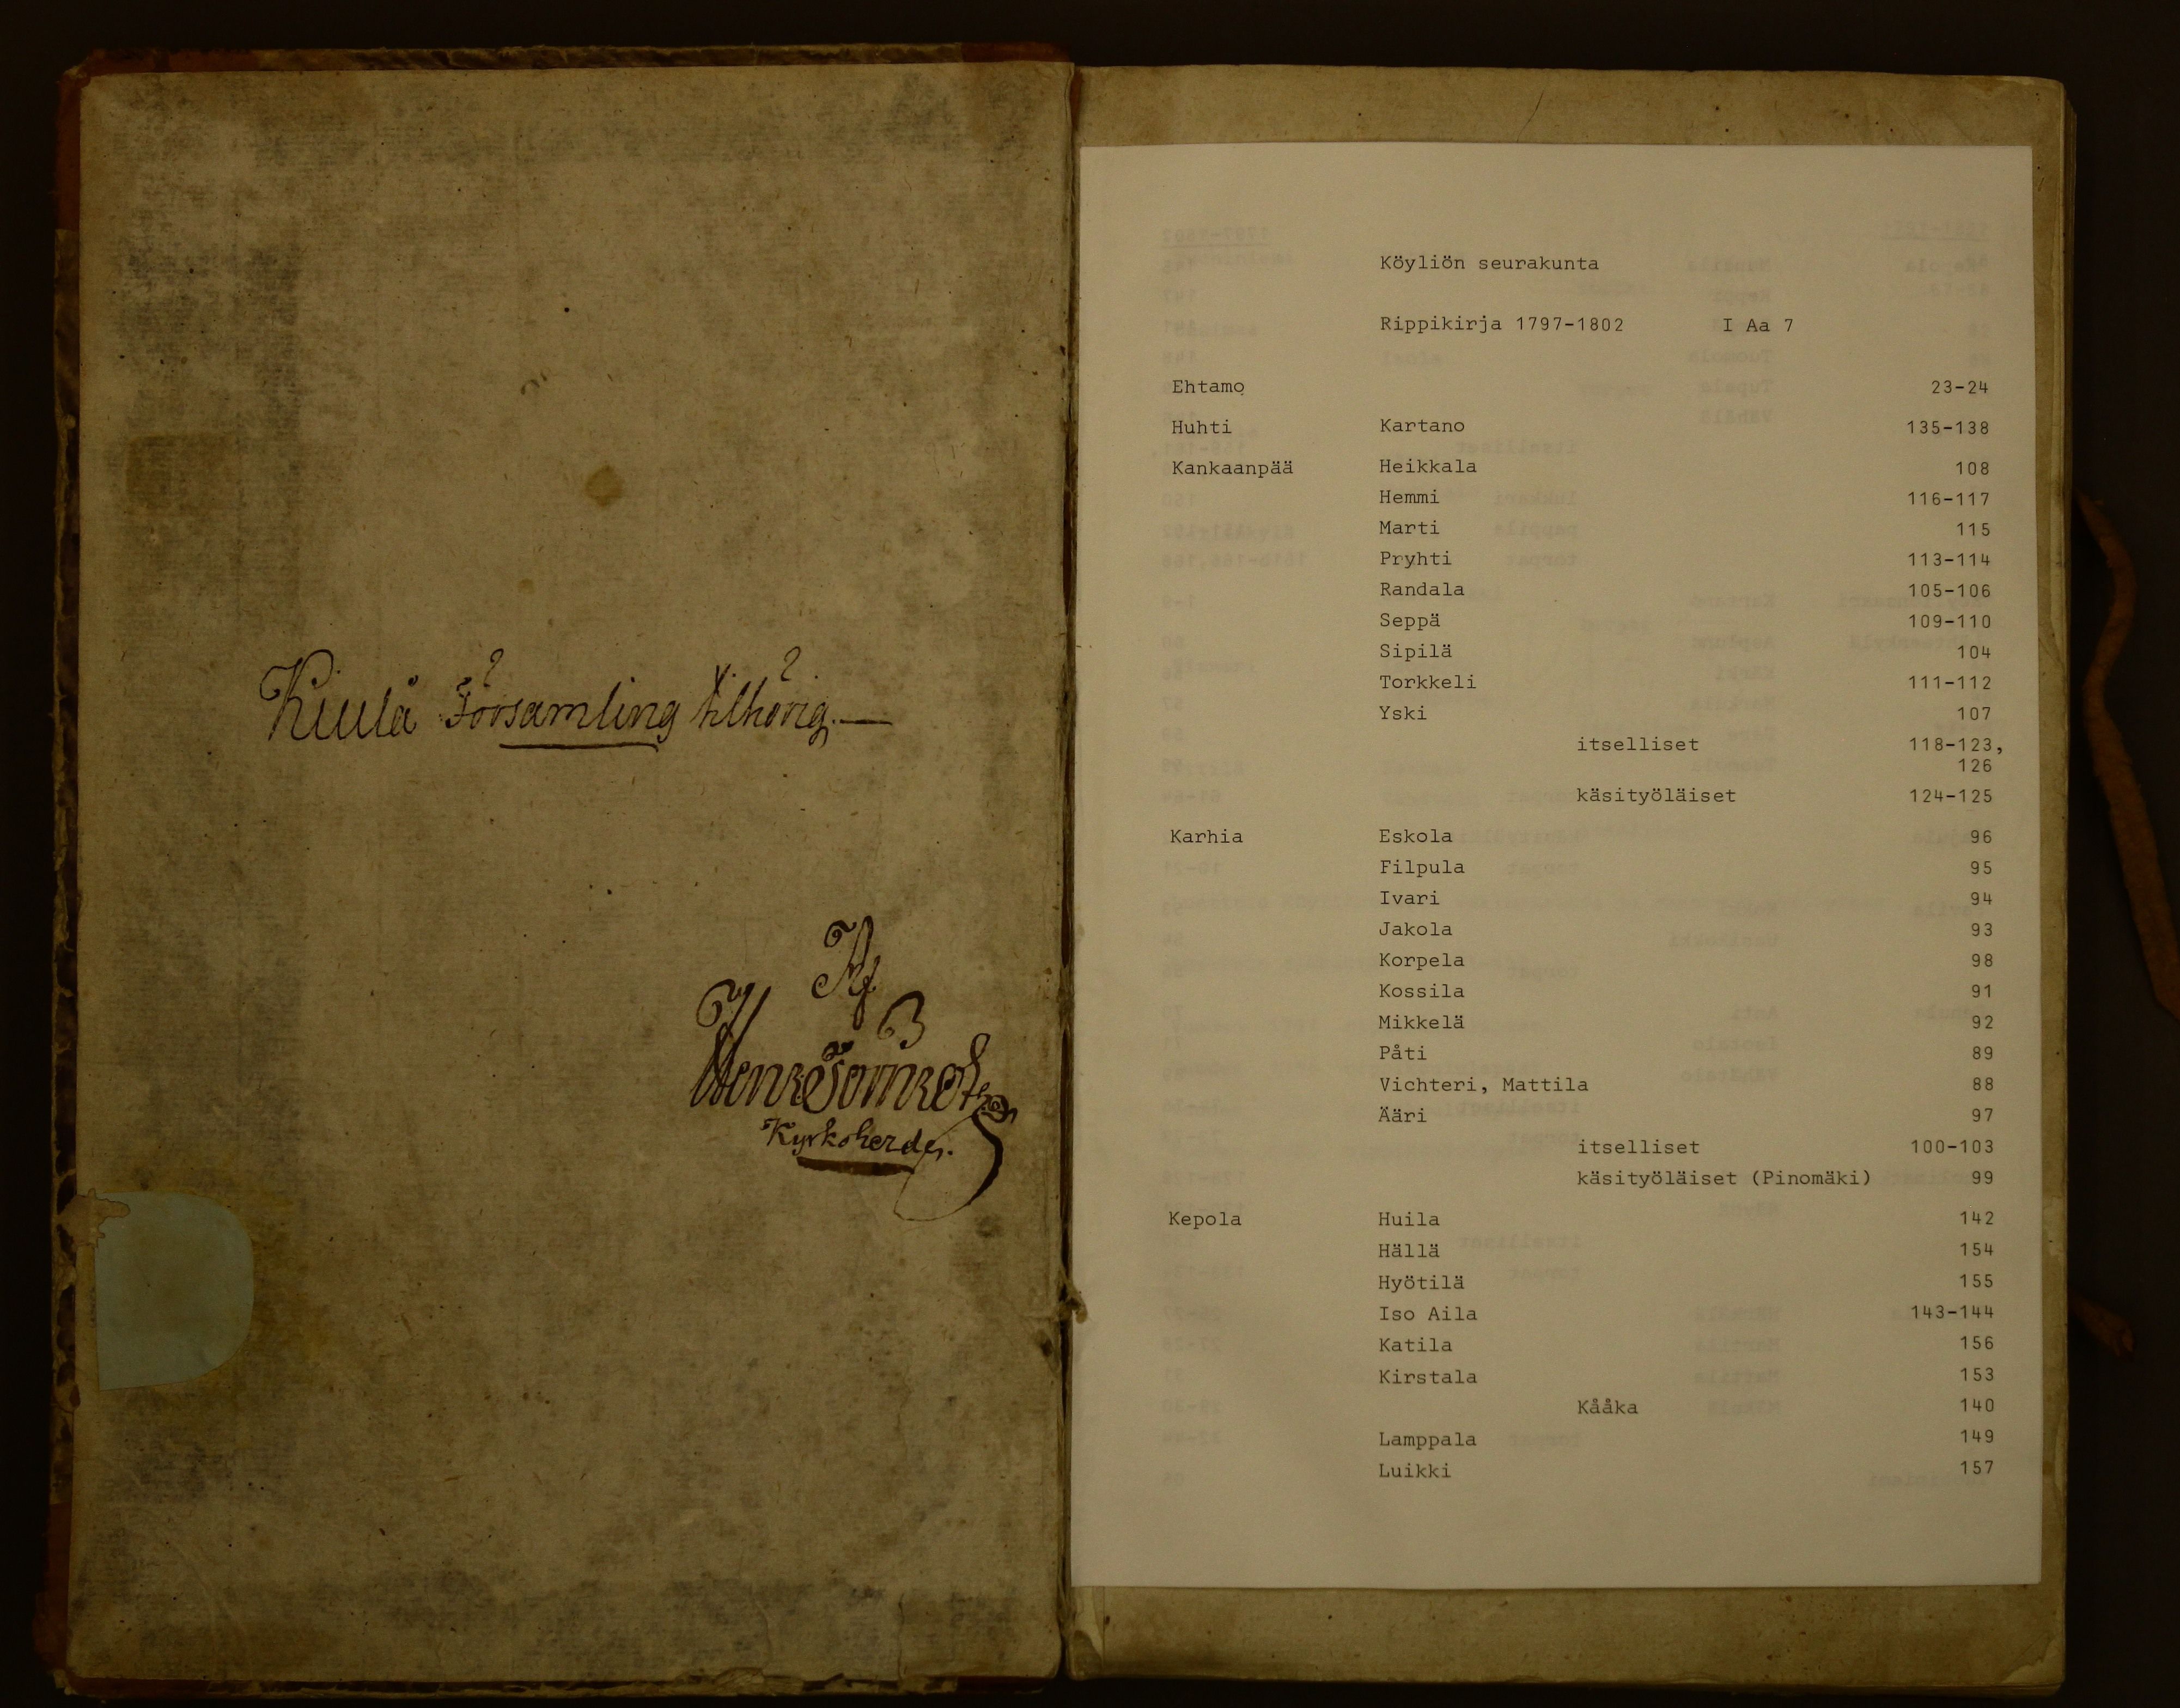 Kiulå Församling tilhörig.—
Af
Kyrkoherde.
Köyliön seurakunta
Rippikirja 1797-1802 I Aa 7
Ehtamo 23-24
Huhti Kartano 135-138
Kankaanpää Heikkala 108
Hemmi 116-117
Marti 115
Pryhti 113-114
Randala 105-106
Seppä 109-110
Sipilä 104
Torkkeli 111-112
Yski 107
itselliset 118-123,
126
käsityöläiset 124-125
Karhia Eskola 96
Filpula 95
Ivari 94
Jakola 93
Korpela 98
Kossila 91
Mikkelä 92
Påti 89
Vichteri, Mattila 88
Ääri 97
itselliset 100-103
käsityöläiset (Pinomäki) 99
Kepola Huila 142
Hällä 154
Hyötilä 155
Iso Aila 143-144
Katila 156
Kirstala 153
Kååka 140
Lamppala 149
Luikki 157